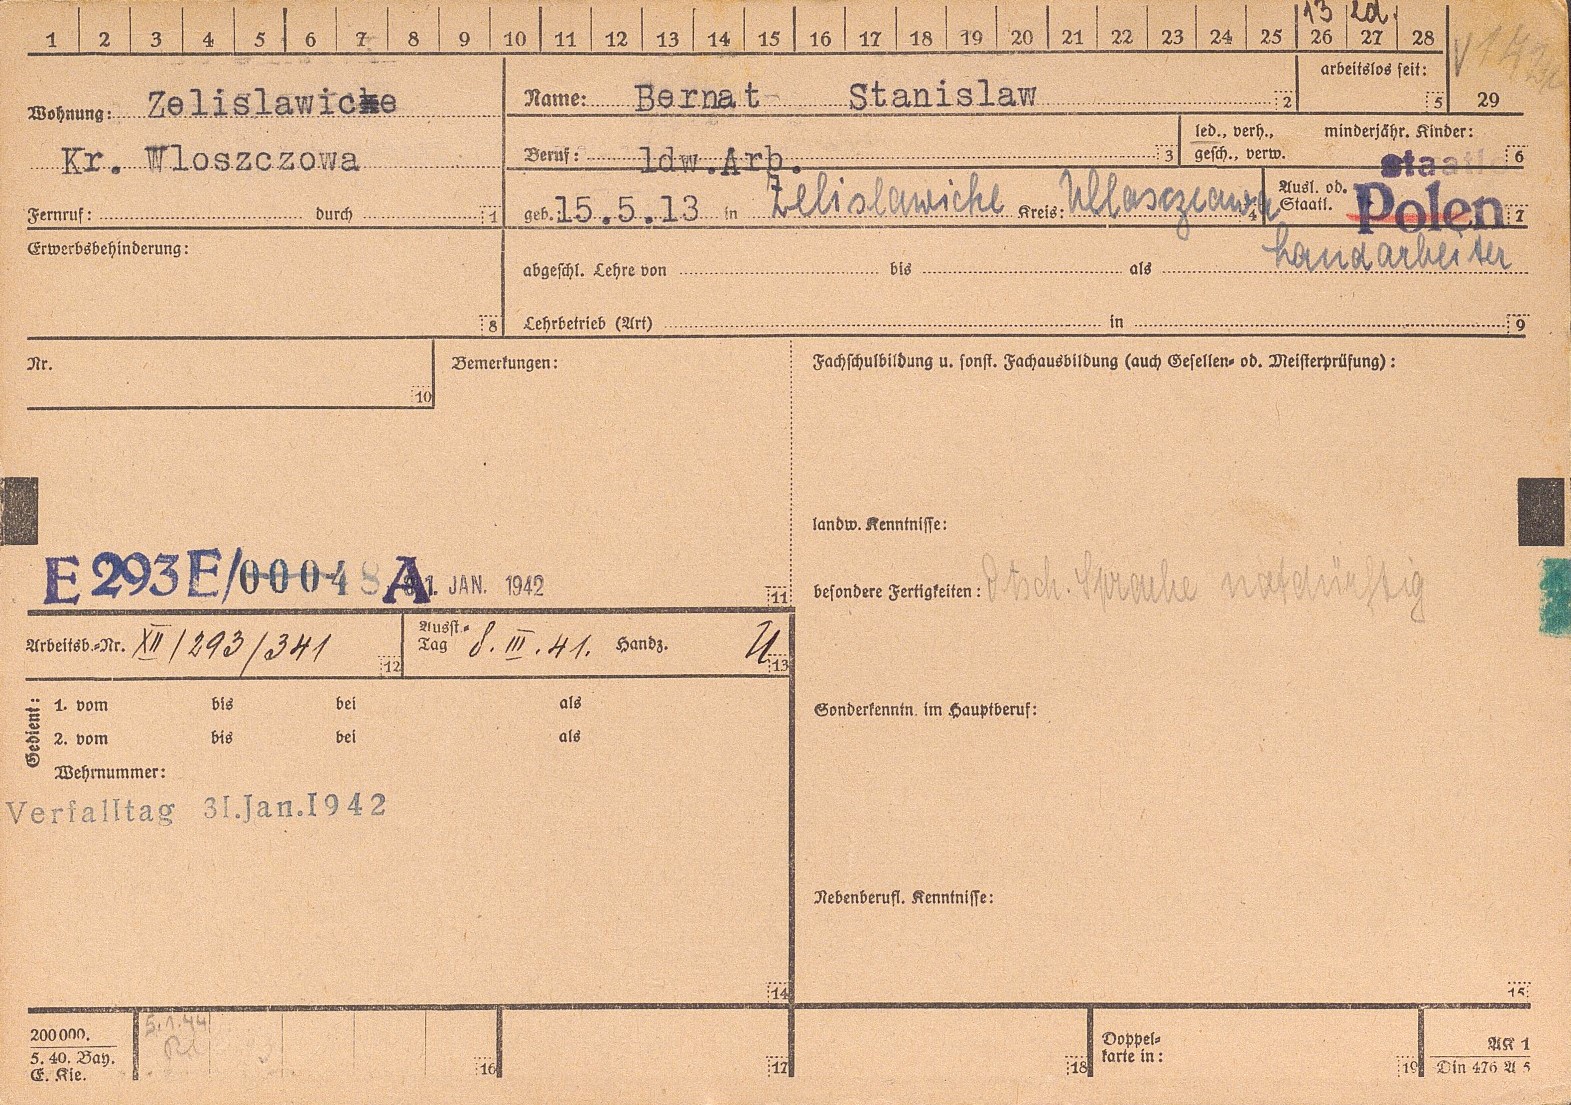 13 2d.
1 2 3 4 5 6 7 8 9 10 11 12 13 14 15 16 17 18 19 20 21 22 23 24 25 26 27 28
29
Wohnung: Zelislawicke
Kr. Wloszczowa
Fernruf: durch 1
Name: Bernat Stanislaw 2
arbeitslos seit: 5
Beruf: ldw.Arb. 3
led., verh., gesch., verw.
minderjähr. Kinder: 6
geb. 15.5.13 in Zelislawicke Kreis: 4
Ausl. od. Staatl. Polen 7
Landarbeiter
Erwerbsbehinderung: 8
abgeschl. Lehre von bis als
Lehrbetrieb (Art) in 9
Nr. 10
Bemerkungen:
Fachschulbildung u. sonst. Fachausbildung (auch Gesellen- od. Meisterprüfung):
landw. Kenntnisse:
E 293 E/00048 A 31. JAN. 1942 11
besondere Fertigkeiten: Dtsch. Sprache notdürftig
Arbeitsb.-Nr. XII/293/341 12
Ausst.-Tag 8. III. 41. Handz. 13
Gedient:
1. vom bis bei als
2. vom bis bei als
Wehrnummer:
Sonderkenntn. im Hauptberuf:
Verfalltag 31.Jan.1942
Nebenberufl. Kenntnisse:
14
15
200000.
5. 40. Bay.
E. Kie.
5.1.44
16
17
18
Doppel-
karte in: 19
AK 1
Din 476 A 5